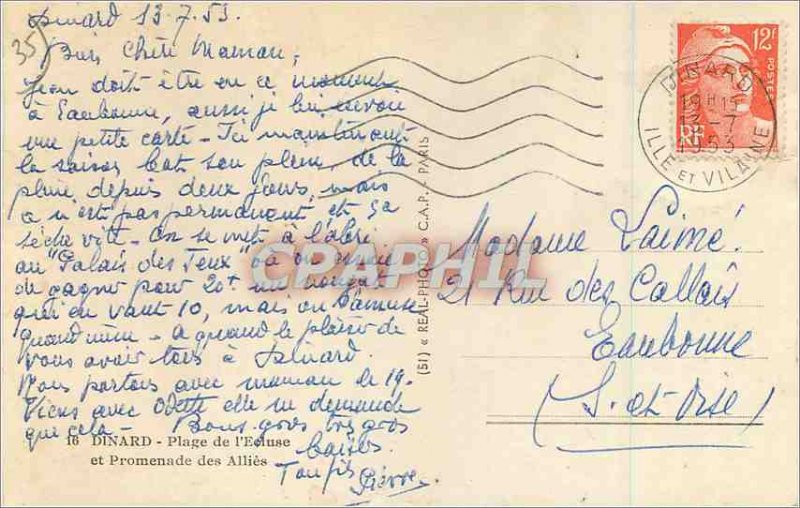 Dinard 13.7.53.
35
Bien Chère Maman,
Jean doit être en ce moment
à Eaubonne, aussi je lui envoie
une petite carte - Ici maintenant
la saison bat son plein, de la
pluie depuis deux jours, mais
ça n'est pas permanent et ça
sèche vite - On se met à l'abri
au "Palais des Jeux" où on essaie
de gagner pour 20f un
qui en vaut 10, mais on s'amuse
quand même - A quand le plaisir de
vous avoir tous à Dinard.
Nous partons avec maman le 19.
Viens avec Odette elle ne demande
que cela - Bons gros très gros
baisers
Ton fils
Pierre.
16 DINARD - Plage de l'Ecluse
et Promenade des Alliés
(51) « REAL-PHOTO » C.A.P. - PARIS
CPARHIL
12F
POSTES
RF
DINARD
19H15
13-7
1953
ILLE ET VILAINE
Madame Lainé.
21 Rue des Callais
Eaubonne
(S.-et-Oise)